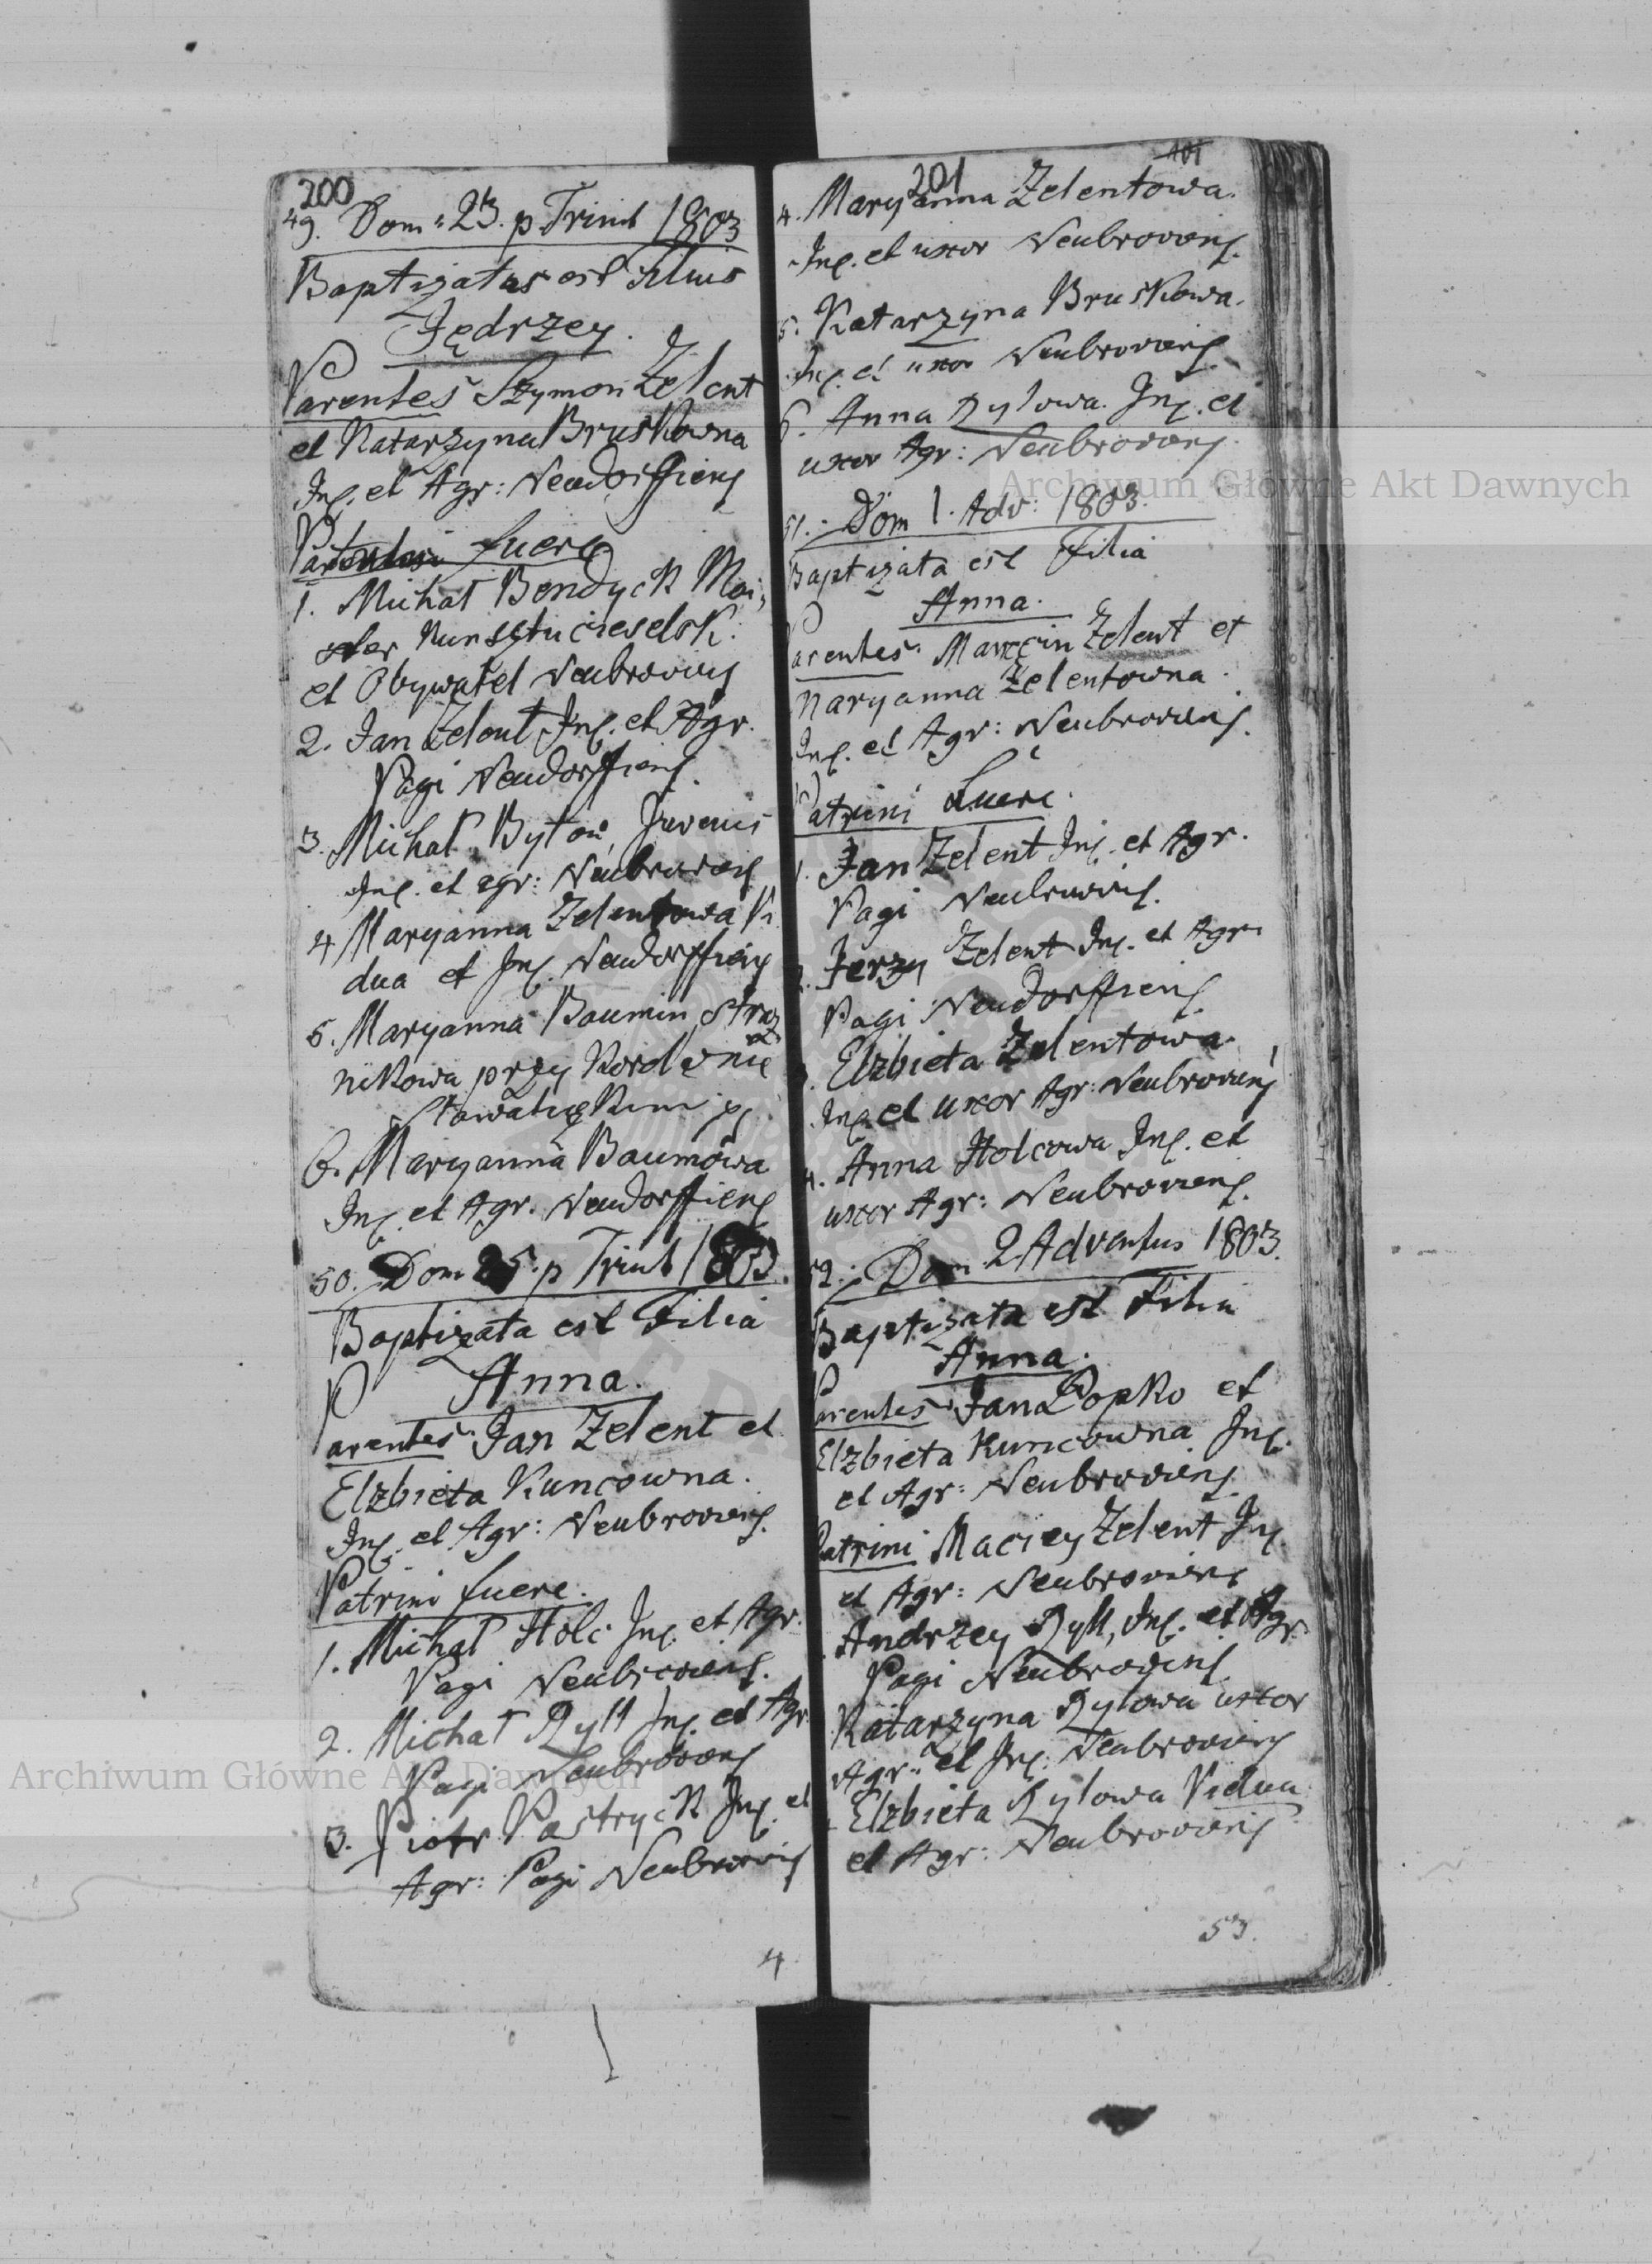 200
49. Dom: 23. p. Trinit 1803
Baptizatus est Filius
Jędrzey.
Parentes Szymon Zelent
et Katarzyna Bruskowna
Inq. et Agr: Neudorffiens
Patrini fuere
1. Michał Bendyck Mai,
ster Kunsztu cieselsk:
et Obywatel Neubroviens
2. Jan Zelent Inq. et Agr.
Pagi Neudorffiens.
3. Michał Bytow, Juvenis
Inq. et agr: Neubroviens
4 Maryanna Zelentowa Vi
dua et Inq. Neudorffiens
5. Maryanna Baumin, Straż
nikowa przy Kordonie
Sławatyckim
6. Maryanna Baumowa
Inq. et Agr. Neudorffiens
50. Dom 25. p Trinit 1803.
Baptizata est Filia
Anna.
Parentes: Jan Zelent et
Elzbieta Kuncowna.
Inq. et Agr: Neubroviens.
Patrini fuere.
1. Michał Holc Inq. et Agr.
Pagi Neubroviens.
2. Michał Ryll Inq. et Agr.
Pagi Neubroviens
3. Piotr Pastryck Inq. et
Agr: Pagi Neubroviens
4
201
101
4. Maryanna Zelentowa.
Inq. et uxor Neubroviens.
5. Katarzyna Bruskowa.
Inq. et uxor Neubroviens.
6. Anna Rylowa. Inq. et
uxor Agr: Neubroviens.
51. Dom 1. Adv: 1803.
Baptizata est Filia
Anna.
Parentes: Marcin Zelent et
Maryanna Zelentowna.
Inq. et Agr: Neubroviens.
Patrini fuere.
1. Jan Zelent Inq. et Agr.
Pagi Neubroviens.
2. Jerzy Zelent Inq. et Agr:
Pagi Neudorffiens.
3. Elzbieta Zelentowa.
Inq. et uxor Agr: Neubroviens
4. Anna Holcowa Inq. et
uxor Agr: Neubroviens.
52. Dom. 2 Adventus 1803.
Baptizata est Filia
Anna.
Parentes: Jan Popko et
Elzbieta Kuncowna Inq.
et Agr: Neubroviens.
Patrini Maciey Zelent Inq.
et Agr: Neubroviens
Andrzey Ryll, Inq. et Agr.
Pagi Neubroviens.
Katarzyna Rylowa uxor
Agr: et Inq: Neubroviens
Elzbieta Rylowa Vidua
et Agr: Neubroviens
53.
Archiwum Główne Akt Dawnych
Archiwum Główne Akt Dawnych